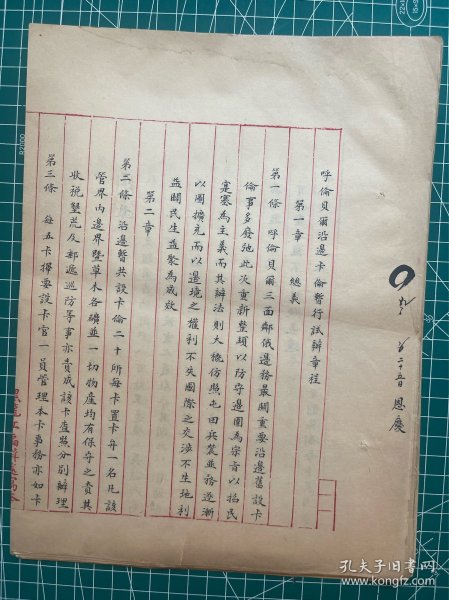 呼倫貝爾沿邊卡倫暫行試辦章程
第一章　總義
第一條　呼倫貝爾三面鄰俄邊務最關重要沿邊舊設卡
倫事多廢弛此次重新整頓以防守邊圉為宗旨以招民
實塞為主義而其辦法則大概仿照屯田兵農並務逐漸
以圖擴充而以邊境之權利不失國際之交涉不生地利
益闢民生益聚為成效
第二章
第二條　沿邊暫共設卡倫二十所每卡置卡弁一名凡該
管界內邊界暨草木各礦並一切物產均有保守之責其
收稅墾荒及郵遞巡防等事亦責成該卡查照分別辦理
第三條　每五卡擇要設卡官一員管理本卡事務亦如卡
恩慶
孔夫子旧书网
www.kongfz.com